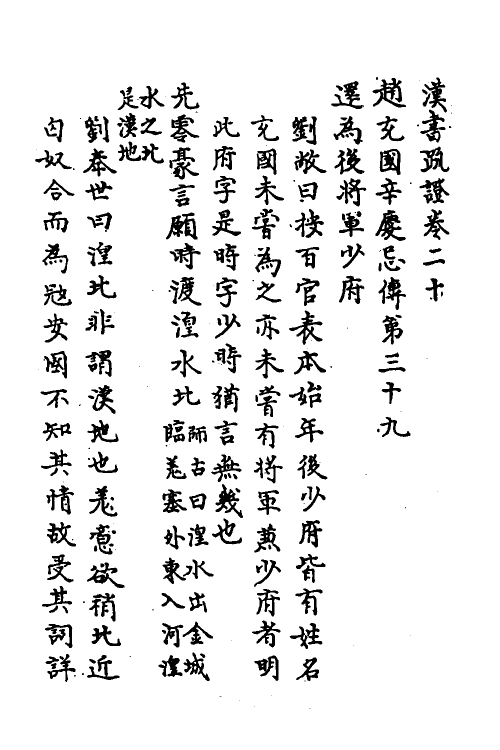 漢書疏證卷二十
趙充國辛慶忌傳第三十九
還為後將軍少府
劉敞曰按百官表本始年後少府皆有姓名
充國未嘗為之亦未嘗有將軍兼少府者明
此府字是時字少時猶言無幾也
先零豪言願時渡湟水北師古曰湟水出金城臨羌塞外東入河湟
水之北是漢地
劉奉世曰湟北非謂漢地也羌意欲稍北近
匈奴合而為冠安國不知其情故受其詞詳